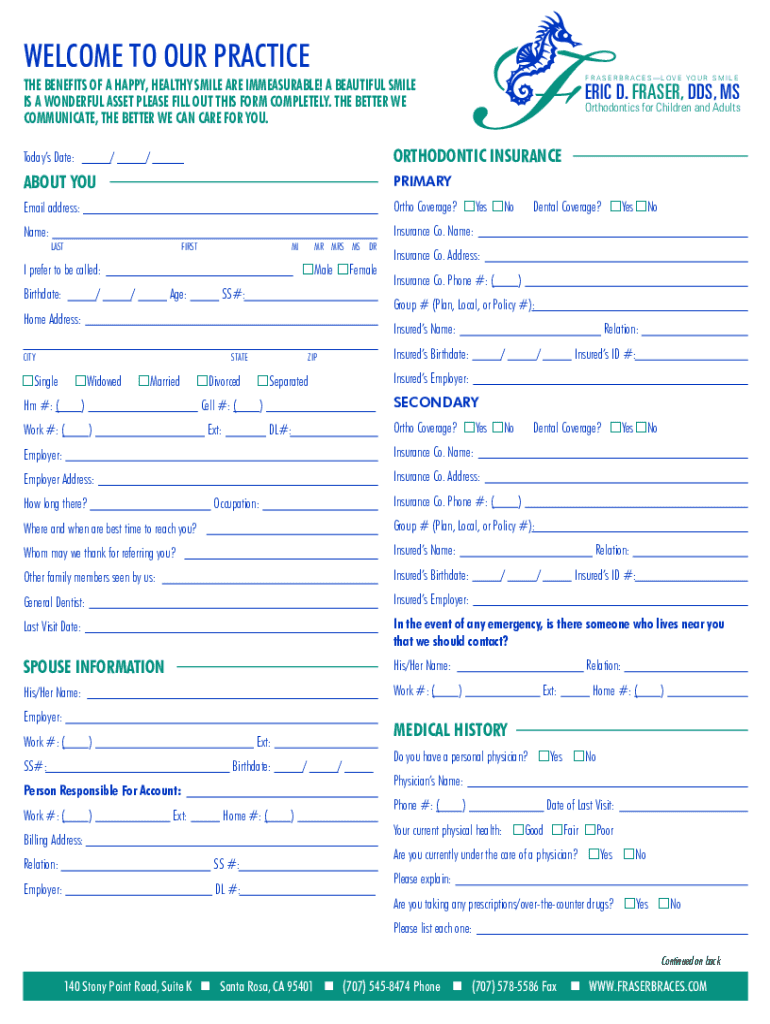 WELCOME TO OUR PRACTICE
THE BENEFITS OF A HAPPY, HEALTHY SMILE ARE IMMEASURABLE! A BEAUTIFUL SMILE
IS A WONDERFUL ASSET PLEASE FILL OUT THIS FORM COMPLETELY. THE BETTER WE
COMMUNICATE, THE BETTER WE CAN CARE FOR YOU.
FRASERBRACES—LOVE YOUR SMILE
ERIC D. FRASER, DDS, MS
Orthodontics for Children and Adults
Today's Date: _____/ _____/ _____
ABOUT YOU
Email address:
Name:
LAST FIRST MI MR MRS MS DR
I prefer to be called: □Male □Female
Birthdate: _____/ _____/ _____ Age: _____ SS#:
Home Address:
CITY STATE ZIP
□Single □Widowed □Married □Divorced □Separated
Hm #: (____) Cell #: (____)
Work #: (____) Ext: DL#:
Employer:
Employer Address:
How long there? Occupation:
Where and when are best time to reach you?
Whom may we thank for referring you?
Other family members seen by us:
General Dentist:
Last Visit Date:
SPOUSE INFORMATION
His/Her Name:
Employer:
Work #: (____) Ext:
SS#: Birthdate: _____/ _____/ _____
Person Responsible For Account:
Work #: (____) Ext: Home #: (____)
Billing Address:
Relation: SS #:
Employer: DL #:
ORTHODONTIC INSURANCE
PRIMARY
Ortho Coverage? □Yes □No Dental Coverage? □Yes □No
Insurance Co. Name:
Insurance Co. Address:
Insurance Co. Phone #: (____)
Group # (Plan, Local, or Policy #):
Insured's Name: Relation:
Insured's Birthdate: _____/ _____/ _____ Insured's ID #:
Insured's Employer:
SECONDARY
Ortho Coverage? □Yes □No Dental Coverage? □Yes □No
Insurance Co. Name:
Insurance Co. Address:
Insurance Co. Phone #: (____)
Group # (Plan, Local, or Policy #):
Insured's Name: Relation:
Insured's Birthdate: _____/ _____/ _____ Insured's ID #:
Insured's Employer:
In the event of any emergency, is there someone who lives near you
that we should contact?
His/Her Name: Relation:
Work #: (____) Ext: Home #: (____)
MEDICAL HISTORY
Do you have a personal physician? □Yes □No
Physician's Name:
Phone #: (____) Date of Last Visit:
Your current physical health: □Good □Fair □Poor
Are you currently under the care of a physician? □Yes □No
Please explain:
Are you taking any prescriptions/over-the-counter drugs? □Yes □No
Please list each one:
Continued on back
140 Stony Point Road, Suite K ■ Santa Rosa, CA 95401 ■ (707) 545-8474 Phone ■ (707) 578-5586 Fax ■ WWW.FRASERBRACES.COM